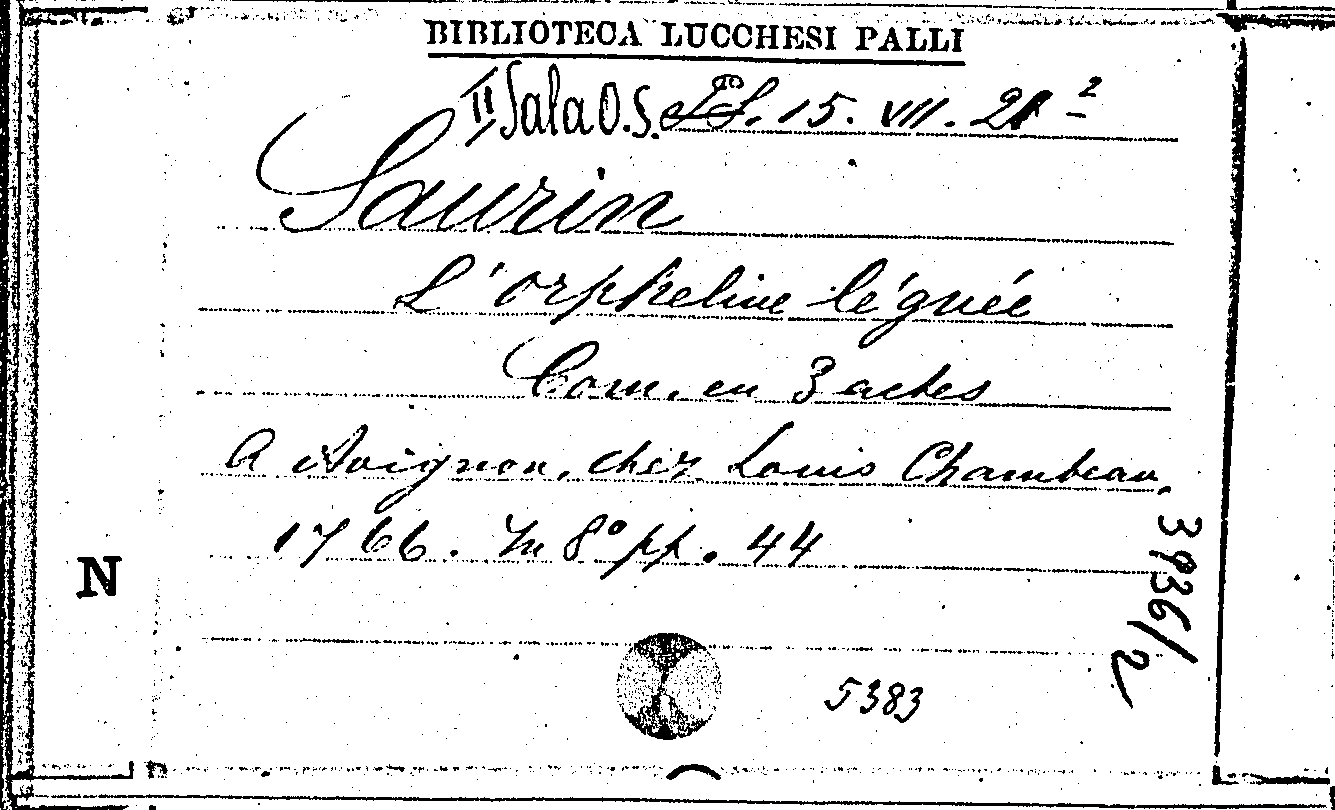 BIBLIOTECA LUCCHESI PALLI
II Sala O.S. 15. VII. 21²
Saurin
L'orpheline léguée
Com. en 3 actes
A Avignon, chez Louis Chambeau,
1766. In 8° pp. 44
N
3936/2
5383